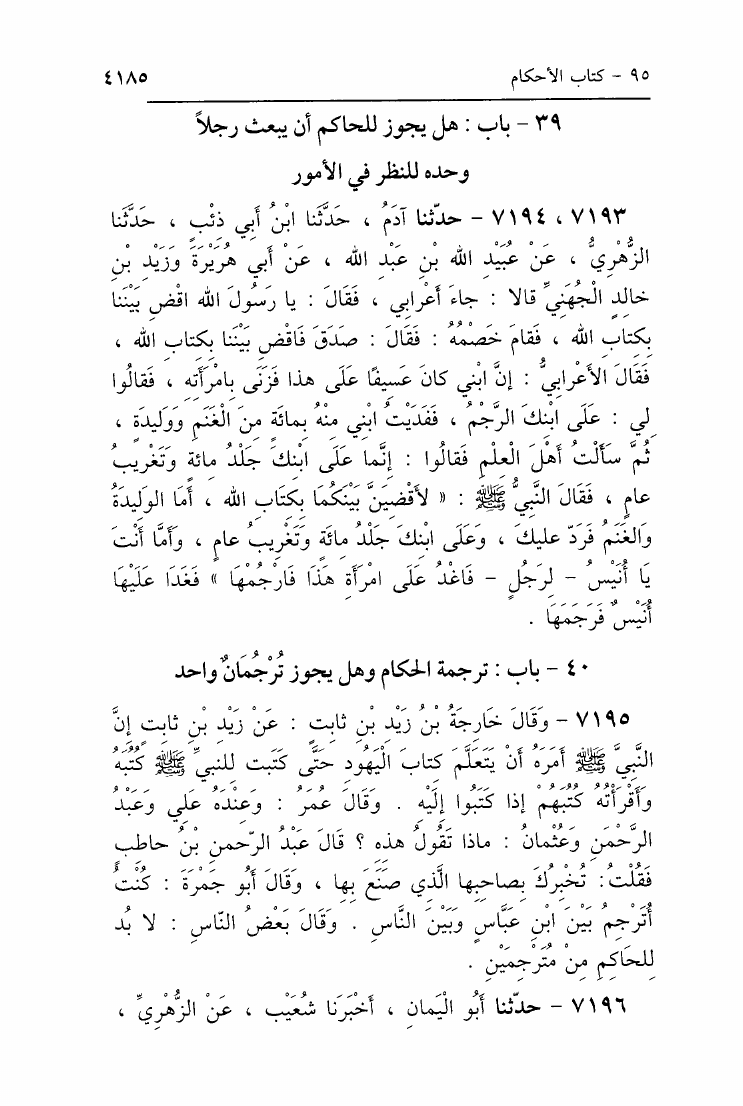 ٩٥ - كتاب الأحكام ٤١٨٥
٣٩ - باب : هل يجوز للحاكم أن يبعث رجلاً
وحده للنظر في الأمور
٧١٩٣ ، ٧١٩٤ - حدّثنا آدَمُ ، حَدَّثَنا ابنُ أَبي ذئْبٍ ، حَدَّثَنا
الزُّهْرِيُّ ، عَنْ عُبَيْدِ الله بْنِ عَبْدِ الله ، عَنْ أبي هُرَيْرَةَ وَزَيْدِ بْنِ
خالِدٍ الْجُهَنِيِّ قالا : جاءَ أعْرابي ، فَقَالَ : يا رَسُولَ الله اقْضِ بَيْنَنا
بِكتابِ الله ، فَقامَ خَصْمُهُ : فَقَالَ : صَدَقَ فَاقْضِ بَيْنَنا بِكتابِ الله ،
فَقَالَ الأعْرابيُّ : إنَّ ابْني كانَ عَسِيفًا عَلَى هذا فَزَنَى بِامْرَأتِهِ ، فَقالُوا
لِي : عَلَى ابْنِكَ الرَّجْمُ ، فَفَدَيْتُ ابْنِي مِنْهُ بِمائَةٍ مِنَ الْغَنَمِ وَوَلِيدَةٍ ،
ثُمَّ سَأَلْتُ أَهْلَ الْعلْمِ فَقالُوا : إنَّما عَلَى ابْنِكَ جَلْدُ مائةٍ وَتَغْرِيبُ
عامٍ ، فَقَالَ النَّبِيُّ ﷺ : « لأَقْضِيَنَّ بَيْنَكُمَا بِكِتَابِ الله ، أَمَا الوَلِيدَةُ
وَالغَنَمُ فَرَدّ عليكَ ، وَعَلَى ابْنِكَ جَلْدُ مائَةٍ وَتَغْرِيبُ عامٍ ، وَأَمَّا أَنْتَ
يَا أُنَيْسُ - لِرَجُلٍ - فَاغْدُ عَلَى امْرأَةِ هَذَا فَارْجُمْهَا » فَغَدَا عَلَيْهَا
أُنَيْسٌ فَرَجَمَهَا .
٤٠ - باب : ترجمة الحكام وهل يجوز تُرْجُمَانٌ واحد
٧١٩٥ - وَقَالَ خَارِجَةُ بْنُ زَيْدِ بْنِ ثابتٍ : عَنْ زَيْدِ بْنِ ثابتٍ إِنَّ
النَّبِيَّ ﷺ أَمَرَهُ أَنْ يَتَعَلَّمَ كتابَ الْيَهُودِ حَتَّى كَتَبت للنبيِّ ﷺ كُتُبَهُ
وَأَقْرَأتُهُ كُتُبَهُمْ إذا كَتَبُوا إِلَيْهِ . وَقَالَ عُمَرُ : وَعِنْدَهُ علي وَعَبْدُ
الرَّحْمَنِ وَعُثْمانُ : ماذا تَقُولُ هذه ؟ قالَ عَبْدُ الرّحمنِ بْنُ حاطِبٍ
فَقُلْتُ : تُخْبِرُكَ بِصاحِبِها الَّذِي صَنَعَ بِها ، وَقَالَ أَبُو جَمْرَةَ : كُنْتُ
أُتَرْجِمُ بَيْنَ ابْنِ عَبَّاسٍ وَبَيْنَ النَّاسِ . وَقَالَ بَعْضُ النّاس : لا بُد
لِلحَاكِمِ مِنْ مُتَرْجِمَيْنِ .
٧١٩٦ - حدّثنا أَبُو الْيَمانِ ، أَخْبَرَنا شُعَيْب ، عَنْ الزُّهْرِيِّ ،